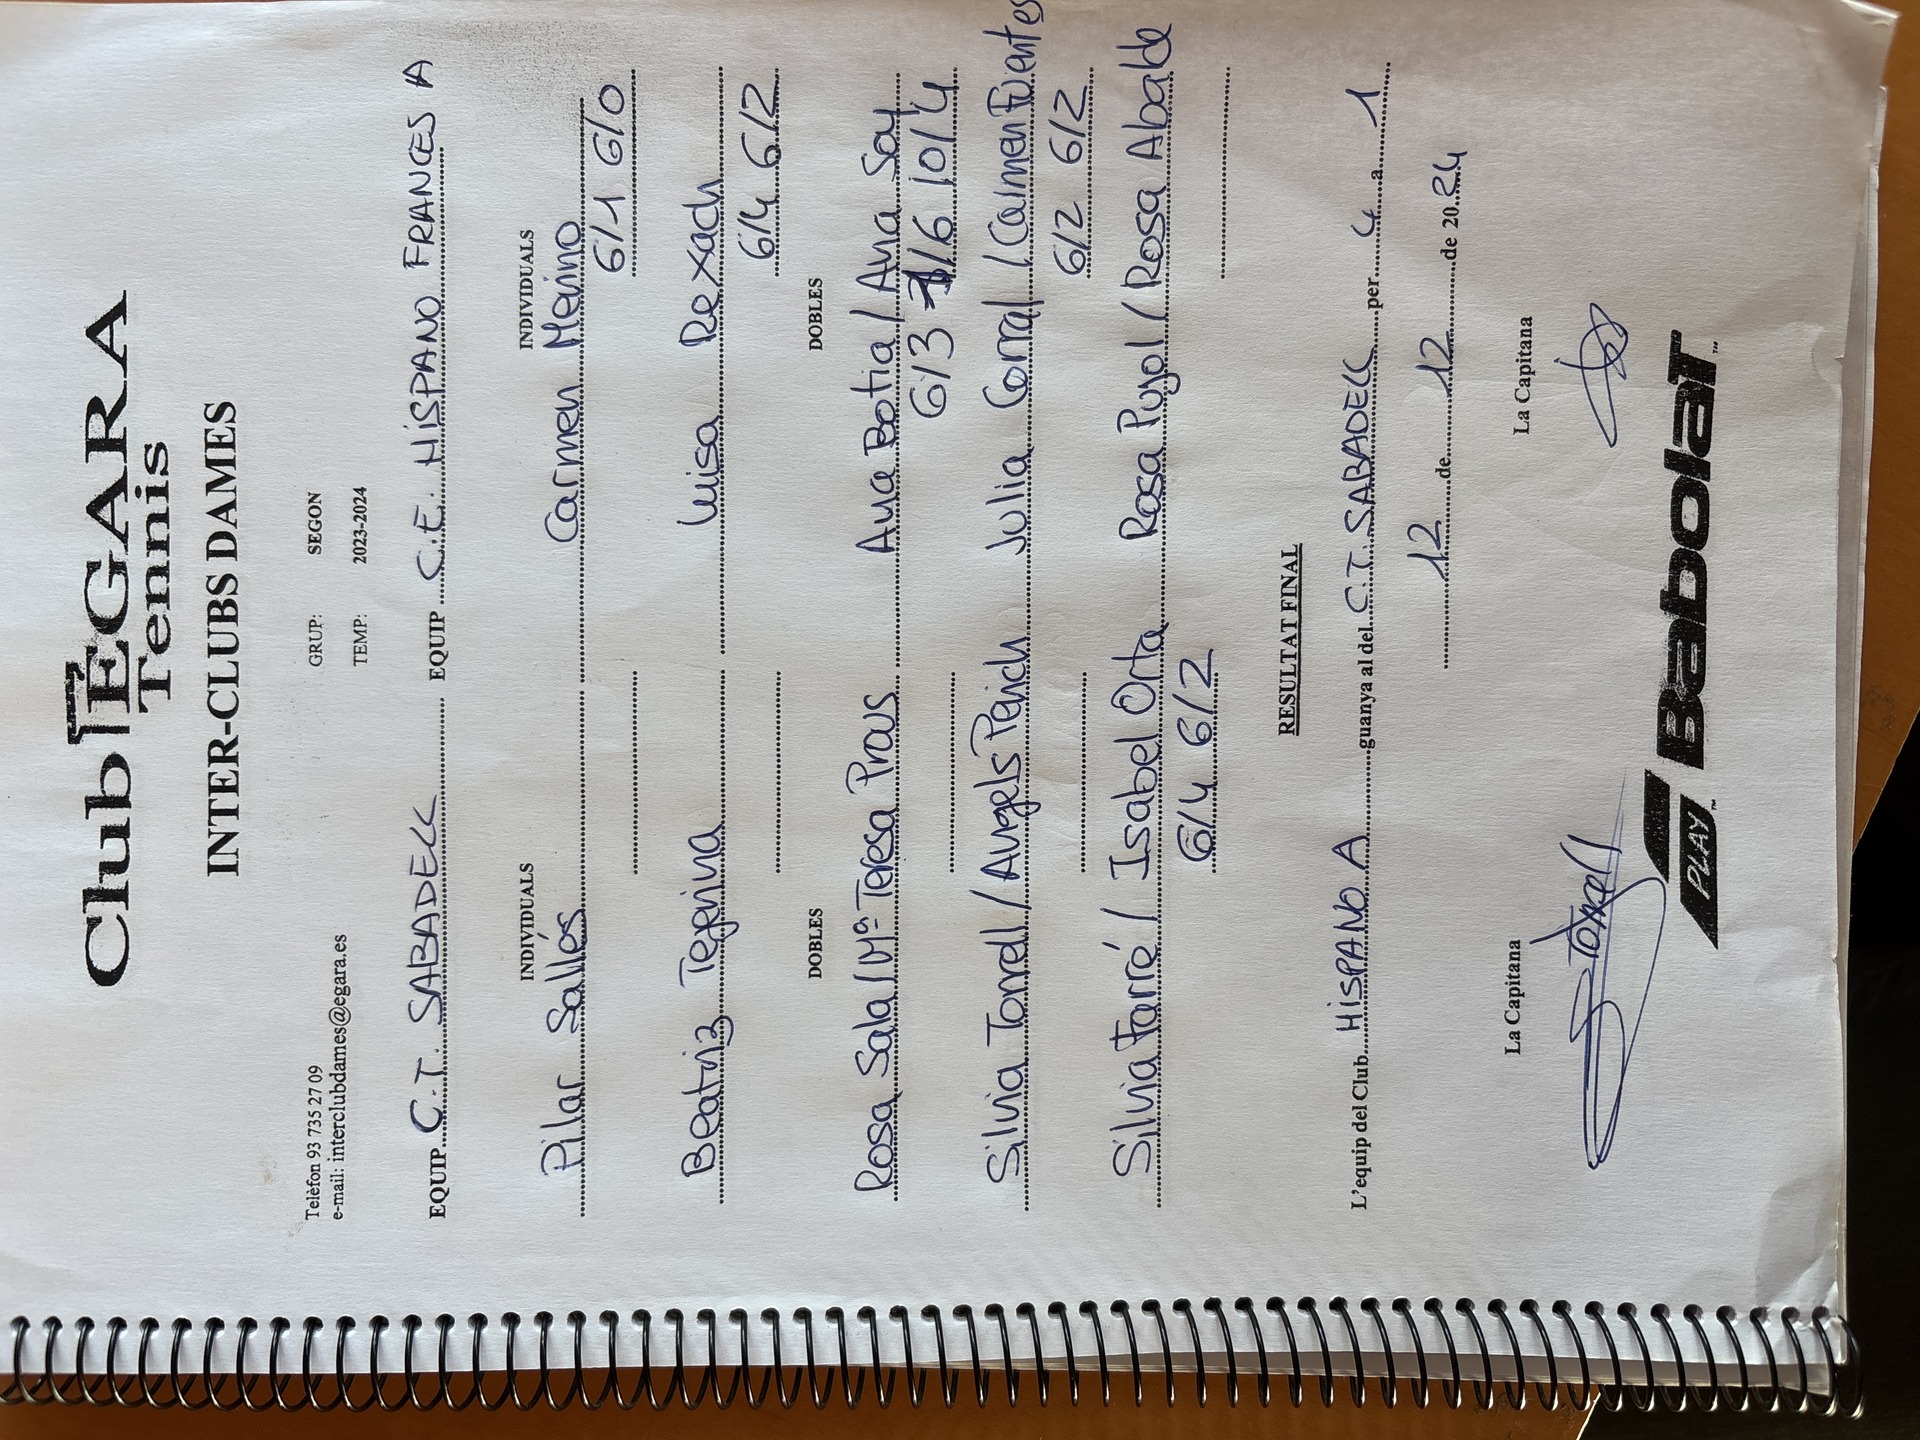 Club EGARA
Tennis
INTER-CLUBS DAMES
Telèfon 93 735 27 09 GRUP: SEGON
e-mail: interclubdames@egara.es TEMP: 2023-2024
EQUIP C.T. SABADELL EQUIP C.E. HISPANO FRANCES A
INDIVIDUALS INDIVIDUALS
Pilar Sallés Carmen Merino
6/1 6/0
Beatriz Tejerina Luisa Rexach
6/4 6/2
DOBLES DOBLES
Rosa Sala / Mª Teresa Prous Ana Botia / Ana Soy
6/3 1/6 10/4
Silvia Torrell / Àngels Perich Julia Corral / Carmen Fuentes
6/2 6/2
Silvia Farré / Isabel Orta Rosa Pujol / Rosa Abalde
6/4 6/2
RESULTAT FINAL
L'equip del Club HISPANO A guanya al del C.T. SABADELL per 4 a 1
12 de 12 de 20 24
La Capitana La Capitana
STorrell
PLAY Babolat™